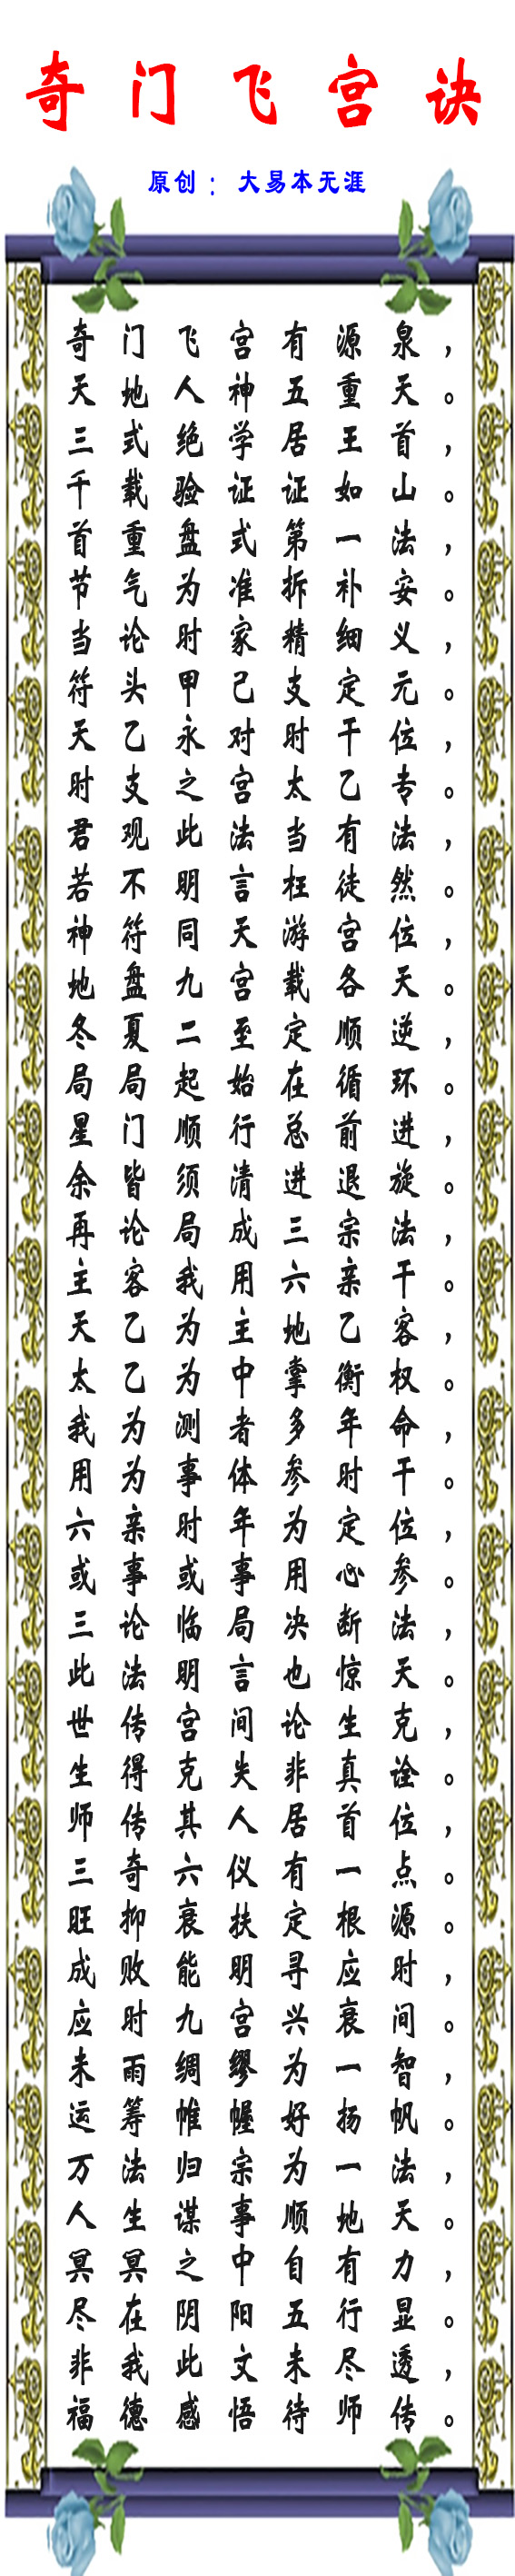 奇门飞宫诀
原创：大易本无涯
奇门飞宫有源泉，
天地人神五重天。
三式绝学居王首，
千载验证证如山。
首重盘式第一法，
节气为准拆补安。
当论时家精细义，
符头甲己支定元。
天乙永对时干位，
时支之宫太乙专。
君观此法当有法，
若不明言枉徒然。
神符同天游宫位，
地盘九宫载各天。
冬夏二至定顺逆，
局局起始在循环。
星门顺行总前进，
余皆须清进退旋。
再论局成三宗法，
主客我用六亲干。
天乙为主地乙客，
太乙为中掌衡权。
我为测者多年命，
用为事体参时干。
六亲时年为定位，
或事或事用心参。
三论临局决断法，
此法明言也惊天。
世传宫间论生克，
生得克失非真诠。
师传其人居首位，
三奇六仪有一点。
旺抑衰扶定根源。
成败能明寻应时，
应时九宫兴衰间。
未雨绸缪为一智，
运筹帷幄好扬帆。
万法归宗为一法，
人生谋事顺地天。
冥冥之中自有力，
尽在阴阳五行显。
非我此文未尽透，
福德感悟待师传。